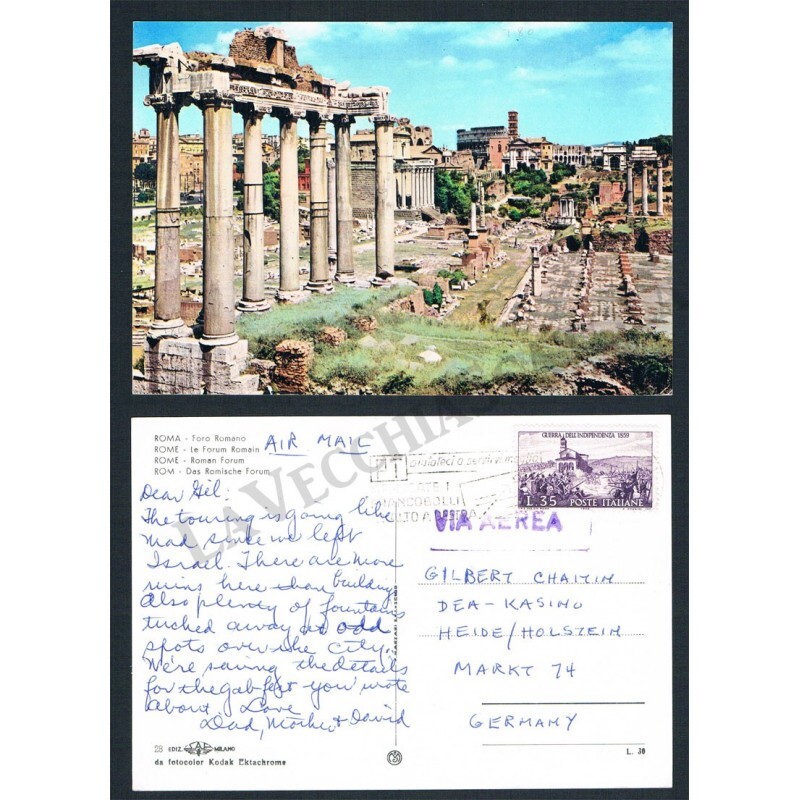 ROMA - Foro Romano
ROME - Le Forum Romain
ROME - Roman Forum
ROM - Das Romische Forum
AIR MAIL
Dear Gil:
The touring is going like
mad since we left
Israel. There are more
ruins here than building
Also plenty of fountains
tucked away at odd
spots over the city.
We're saving the details
for the gabfest you wrote
about. Love
Dad, Mother & David
28 EDIZ. MILANO
da fotocolor Kodak Ektachrome
GUERRA DELL'INDIPENDENZA 1859
L. 35 POSTE ITALIANE
VIA AEREA
GILBERT CHAITIN
DEA - KASINO
HEIDE/HOLSTEIN
MARKT 74
GERMANY
L. 30
LAVECCHIA